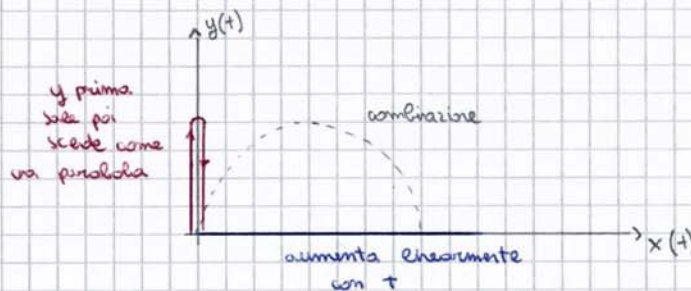 y(t)
y prima
sale poi
scende come
una parabola
combinazione
x(t)
aumenta linearmente
con t